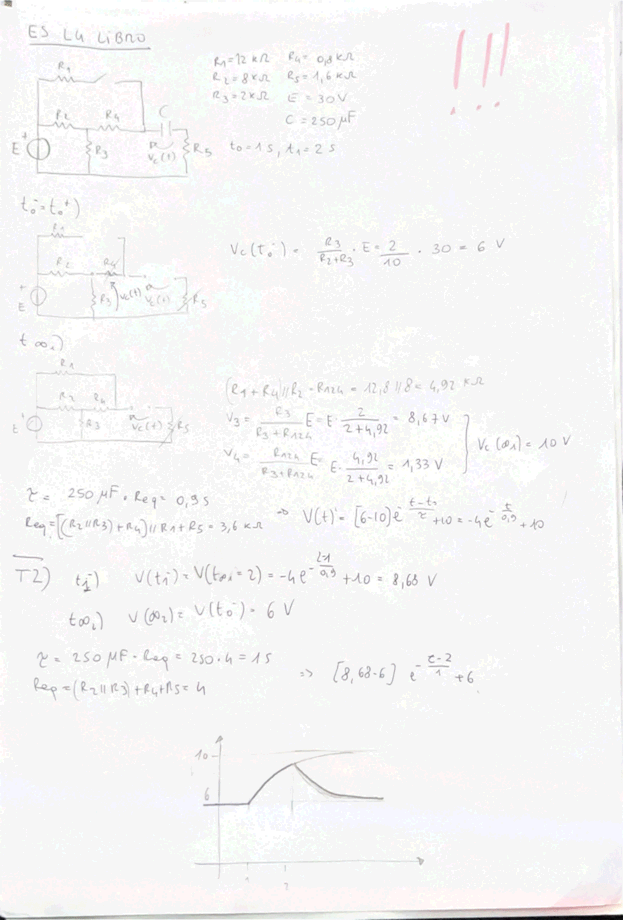 ES L4 LIBRO
R1=12 kΩ R4= 0,8 kΩ
R2= 8 kΩ R5= 1,6 kΩ
R3= 2kΩ E = 30 V
C = 250 μF
t0= 1 s, t1= 2 s
R1
R2 R4 C
E + R3 Vc(t) R5
t0⁻=t0⁺)
Vc(t0⁻) = R3/(R2+R3) · E = 2/10 · 30 = 6 V
R1
R2 R4
+ E R3 Vc(t) Vc(t) R5
t∞1)
R1
R2 R4
+ R3 Vc(t) R5
(R1 + R4)//R2 = R124 = 12,8//8 = 4,92 kΩ
V3 = R3/(R3+R124) E = E· 2/(2+4,92) = 8,67 V
V4 = R124/(R3+R124) E = E· 4,92/(2+4,92) = 1,33 V
Vc(∞1) = 10 V
τ = 250 μF · Req = 0,9 s
Req = [(R2//R3)+R4]//R1+R5 = 3,6 kΩ
⇒ V(t) = [6-10] e^(-(t-t0)/τ) +10 = -4e^(-t/0,9) +10
T2) t1⁻) V(t1⁻) = V(t∞1=2) = -4e^(-(2-1)/0,9) +10 = 8,68 V
t∞2) V(∞2) = V(t0⁻) = 6 V
τ = 250 μF · Req = 250·4 = 1s
Req = (R2//R3)+R4+R5 = 4
⇒ [8,68-6] e^(-(t-2)/1) +6
10
6
1 2